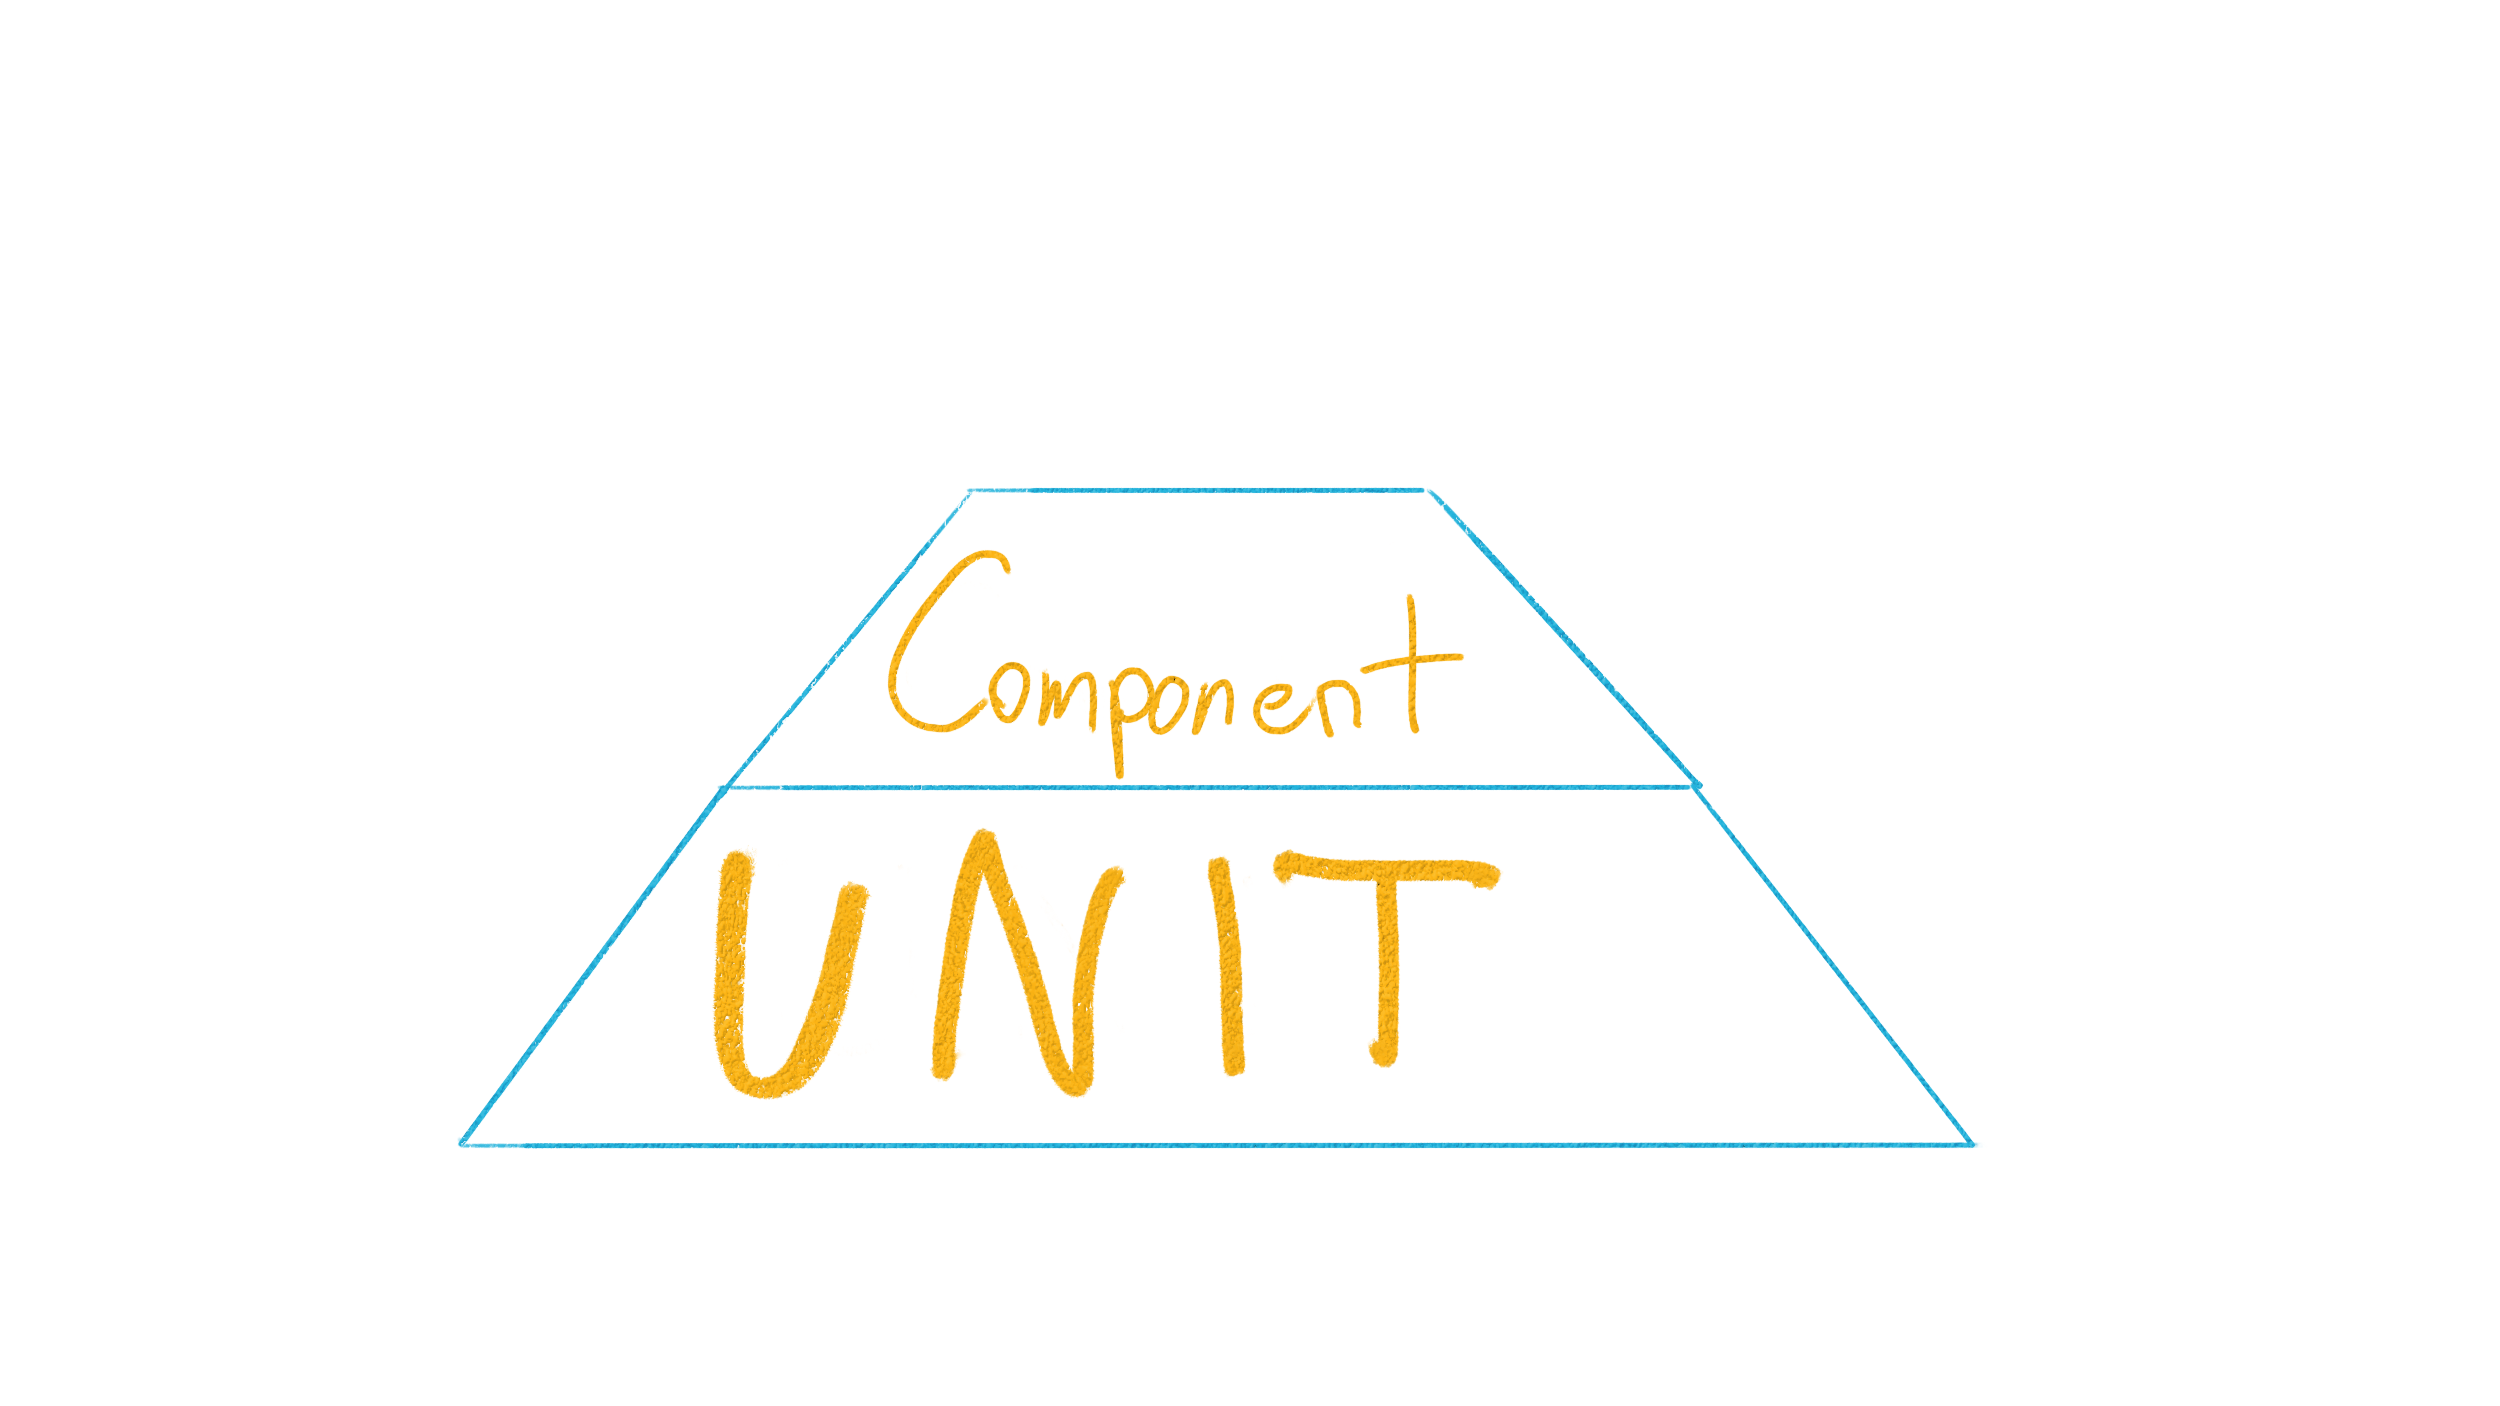 Component
UNIT